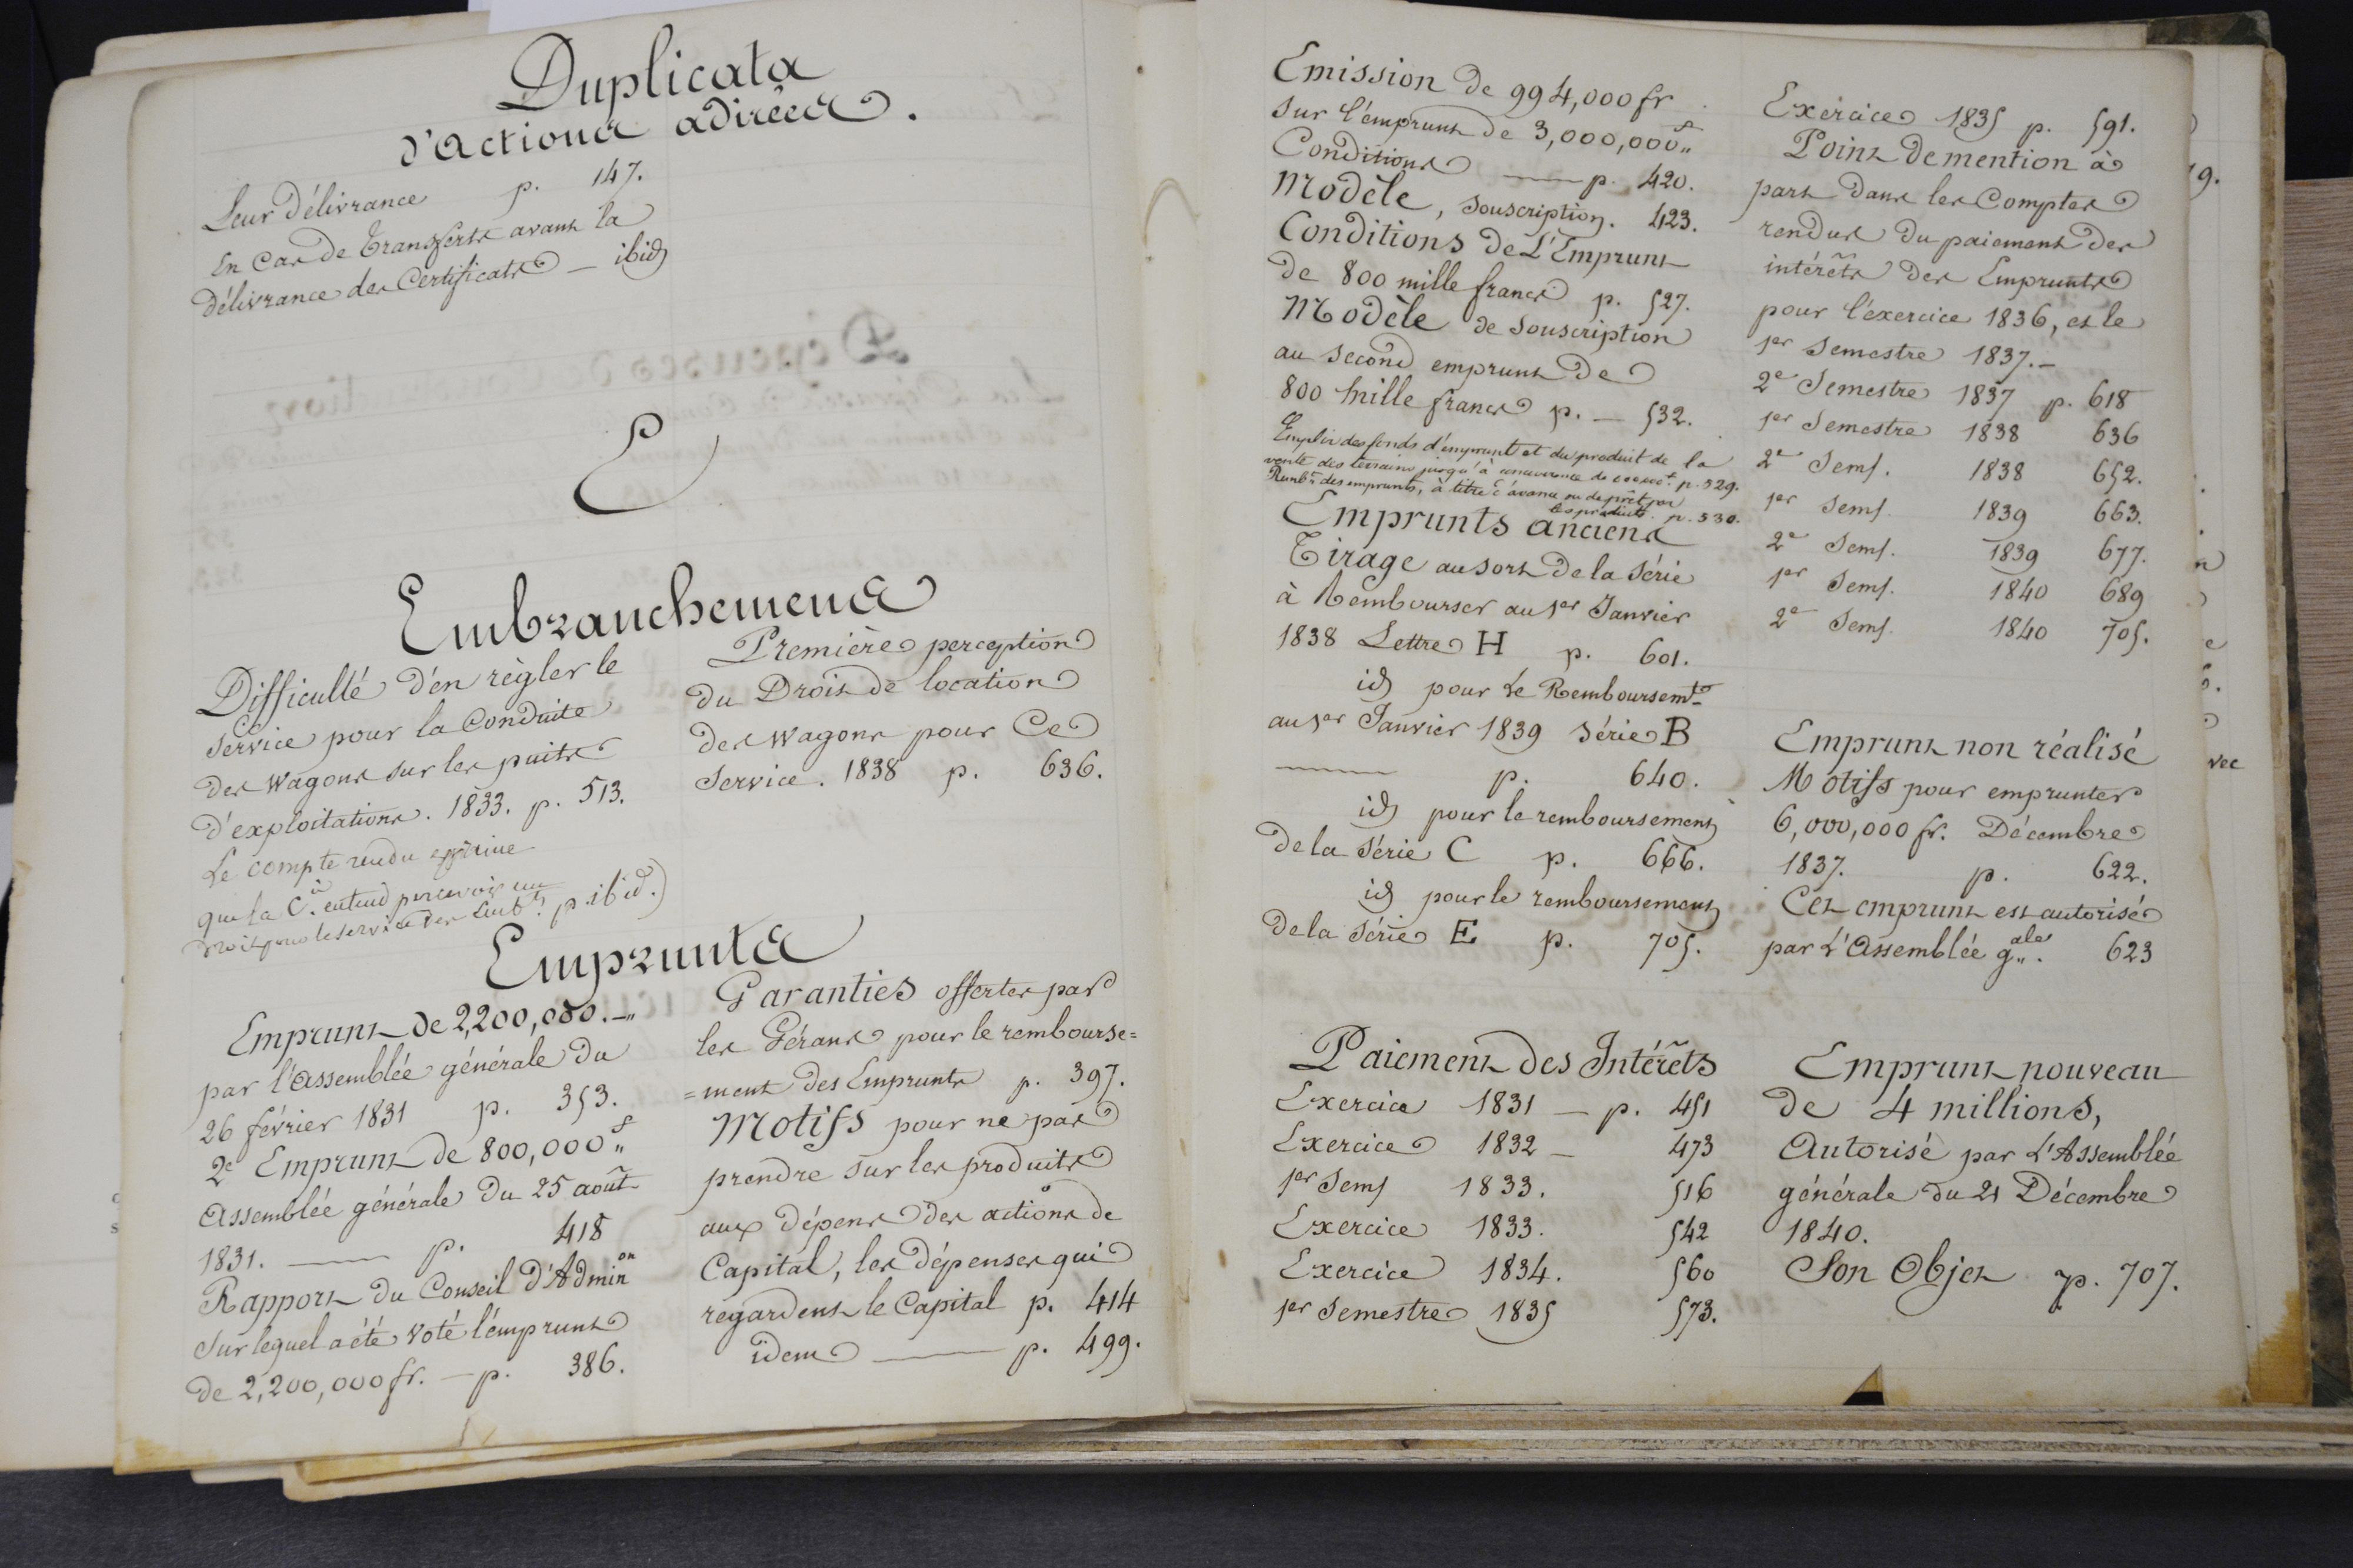 Duplicata
d'actions adirées.
Leur délivrance p. 147.
En cas de Transferts avant la
délivrance des Certificats — ibid
E
Embranchemens
Difficulté d'en règler le
service pour la Conduite
des Wagons sur les puits
d'exploitations. 1833. p. 513.
Le compte rendu exprime
que la Cie. entend percevoir un
droit pour le service des Embts. p. ibid.)
Première perception
du Droit de location
des Wagons pour Ce
Service. 1838 p. 636.
Emprunts
Emprunt de 2,200,000.—"
par l'assemblée générale du
26 février 1831 p. 353.
2e Emprunt de 800,000f"
Assemblée générale du 25 août
1831. — p. 418
Rapport du Conseil d'Adminon
sur lequel a été voté l'emprunt
de 2,200,000 fr. — p. 386.
Garanties offertes par
les Gérans pour le rembourse=
=ment des Emprunts p. 397.
Motifs pour ne pas
prendre sur les produits
aux dépens des actions de
Capital, les dépenses qui
regardent le Capital p. 414
idem — p. 499.
Emission de 994,000 fr
sur l'emprunt de 3,000,000f"
Conditions — p. 420.
Modèle, souscription. 423.
Conditions de L'Emprunt
de 800 mille francs p. 527.
Modèle de souscription
au second emprunt de
800 mille francs p. — 532.
Emploi des fonds d'emprunt et du produit de la
vente des terrains jusqu'à concurrence de p. 529.
des emprunts, à titre d'avance ou de prêt par
les produits. p. 530.
Emprunts anciens
Tirage au sort de la série
à Rembourser au 1er Janvier
1838 Lettre H p. 601.
id pour le Remboursemt
au 1er Janvier 1839 série B
— p. 640.
id pour le remboursement
de la série C p. 666.
id pour le remboursement
de la série E p. 705.
Paiement des Intérêts
Exercice 1831 — p. 451
Exercice 1832 — 473
1er Sems 1833. 516
Exercice 1833. 542
Exercice 1834. 560
1er Semestre 1835 573.
Exercice 1835 p. 591.
Point de mention à
part dans les Comptes
rendus du paiement des
intérêts des Emprunts
pour l'éxercice 1836, et le
1er Semestre 1837.—
2e Semestre 1837 p. 618
1er Semestre 1838 636
2e Sems. 1838 652.
1er Sems. 1839 663.
2e Sems. 1839 677.
1er Sems. 1840 689
2e Sems. 1840 705.
Emprunt non réalisé
Motifs pour emprunter
6,000,000 fr. Décembre
1837. p. 622.
Cet emprunt est autorisé
par L'Assemblée gale. 623
Emprunt nouveau
de 4 millions,
Autorisé par L'Assemblée
générale du 21 Décembre
1840.
Son Objet p. 707.